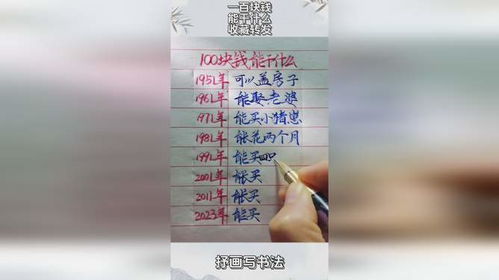 一百块钱
能干什么
收藏转发
100块钱能干什么
1951年 可以盖房子
1961年 能娶老婆
1971年 能买小猪崽
1981年 能花两个月
1991年 能买四只
2001年 能买
2011年 能买
2023年 能买
抒画写书法